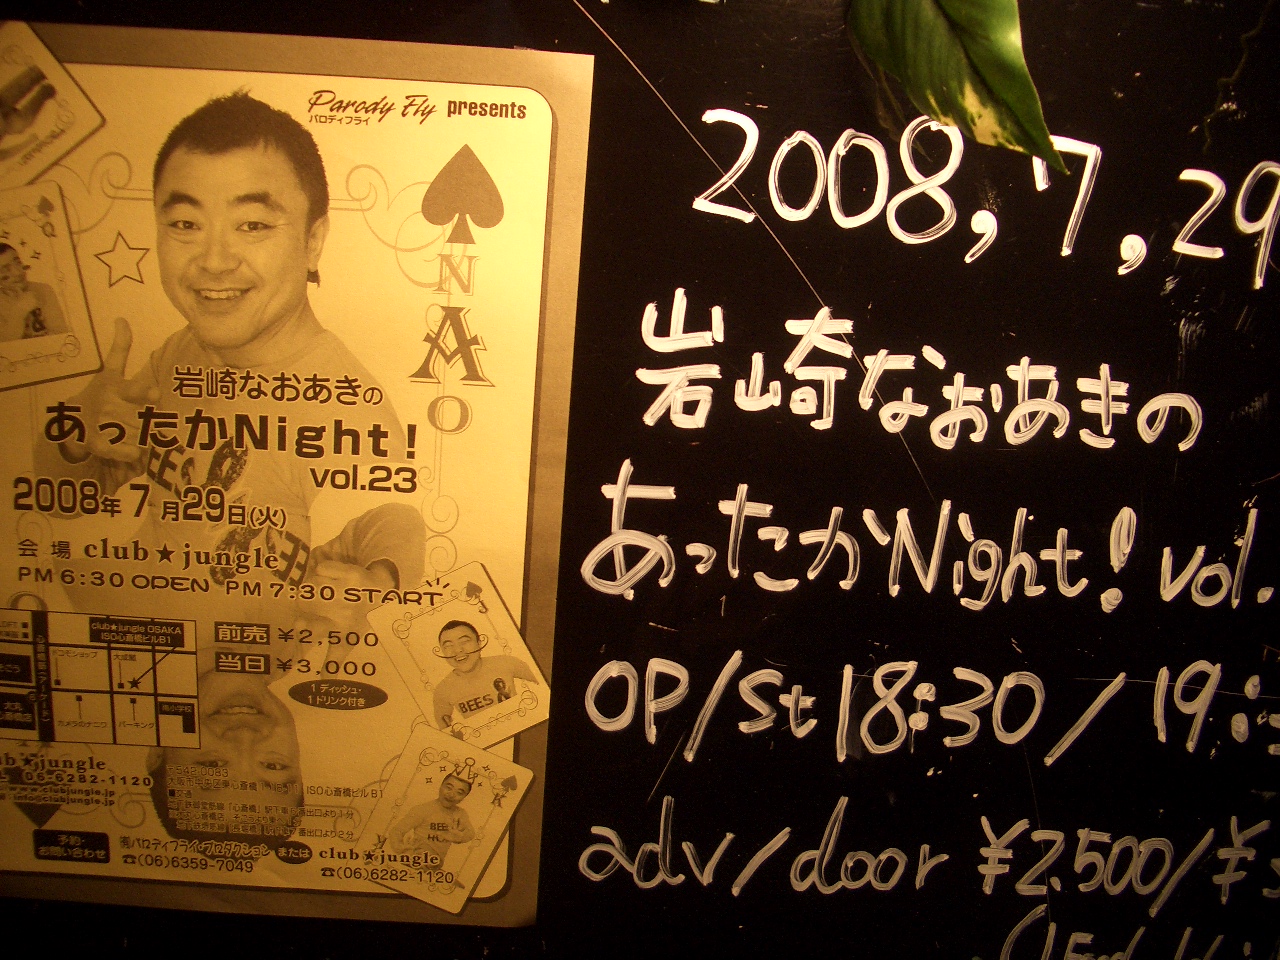 Parody Fly presents
パロディフライ
NAO
岩崎なおあきの
あったかNight!
vol.23
2008年7月29日(火)
会場 club★jungle
PM 6:30 OPEN PM 7:30 START
前売 ¥2,500
当日 ¥3,000
1ディッシュ・
1ドリンク付き
club★jungle OSAKA
ISO心斎橋ビルB1
ドコモショップ
大成閣
カメラのナニワ
パーキング
南小学校
大丸
心斎橋店
ub★jungle
06-6282-1120
www.clubjungle.jp
info@clubjungle.jp
〒542-0083
ISO心斎橋ビルB1
■交通
予約・
お問い合わせ
㈲パロディフライ・プロダクション または club★jungle
☎(06)6359-7049
☎(06)6282-1120
BEES &
2008,7,29
岩崎なおあきの
あったかNight! vol.
OP/St 18:30/19:
adv/door ¥2.500/¥